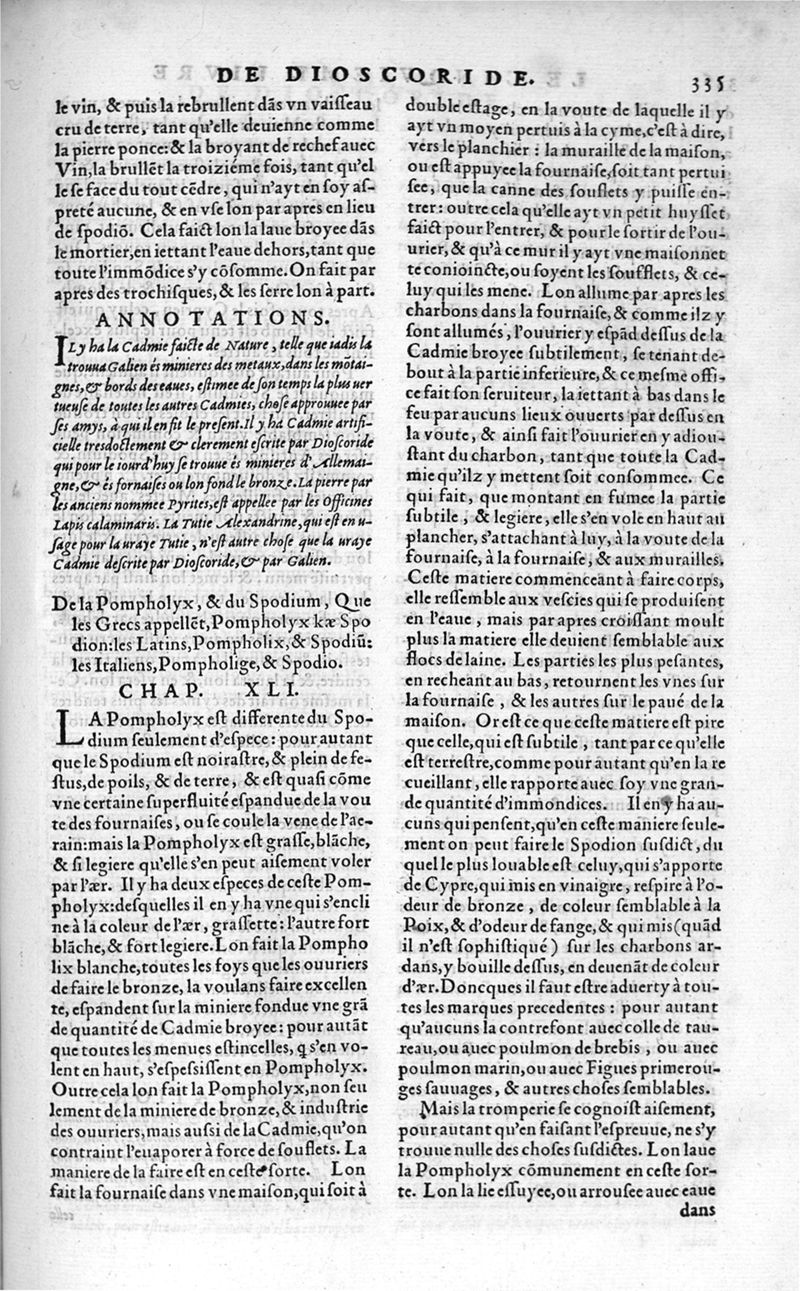 DE DIOSCORIDE.
335
le vin, & puis la rebrullent dãs vn vaiſſeau
cru de terre, tant qu'elle deuienne comme
la pierre ponce: & la broyant de rechef auec
Vin, la brullẽt la troiziéme fois, tant qu'el
le ſe face du tout cẽdre, qui n'ayt en ſoy aſ-
preté aucune, & en vſe lon par apres en lieu
de ſpodiõ. Cela faict lon la laue broyee dãs
le mortier, en iettant l'eaue dehors, tant que
toute l'immõdice s'y cõſomme. On fait par
apres des trochiſques, & les ſerre lon à part.
ANNOTATIONS.
IL y ha la Cadmie faicte de Nature, telle que iadis la
trouua Galien és minieres des metaux, dans les mõtai-
gnes, & bords des eaues, eſtimee de ſon temps la plus uer
tueuſe de toutes les autres Cadmies, choſe approuuee par
ſes amys, à qui il en fit le preſent. Il y hà Cadmie artifi-
cielle tresdoctement & clerement eſcrite par Dioſcoride
qui pour le iourd'huy ſe trouue és minieres d'Allemai-
gne, & és fornaiſes ou lon fond le bronze. La pierre par
les anciens nommee Pyrites, eſt appellee par les Officines
Lapis calaminaris. La Tutie Alexandrine, qui eſt en u-
ſage pour la uraye Tutie, n'eſt autre choſe que la uraye
Cadmie deſcrite par Dioſcoride, & par Galien.
De la Pompholyx, & du Spodium, Que
les Grecs appellẽt, Pompholyx kæ Spo
dion: les Latins, Pompholix, & Spodiũ:
les Italiens, Pompholige, & Spodio.
CHAP. XLI.
LA Pompholyx eſt differente du Spo-
dium ſeulement d'eſpece: pour autant
que le Spodium eſt noiraſtre, & plein de fe-
ſtus, de poils, & de terre, & eſt quaſi cõme
vne certaine ſuperfluité eſpandue de la vou
te des fournaiſes, ou ſe coule la vene de l'ae-
rain: mais la Pompholyx eſt graſſe, blãche,
& ſi legiere qu'elle s'en peut aiſement voler
par l'ær. Il y ha deux eſpeces de ceſte Pom-
pholyx: deſquelles il en y ha vne qui s'encli
ne à la coleur de l'ær, graſſette: l'autre fort
blãche, & fort legiere. Lon fait la Pompho
lix blanche, toutes les foys que les ouuriers
de faire le bronze, la voulans faire excellen
te, eſpandent ſur la miniere fondue vne grã
de quantité de Cadmie broyee: pour autãt
que toutes les menues eſtincelles, q s'en vo-
lent en haut, s'eſpeſsiſſent en Pompholyx.
Outre cela lon fait la Pompholyx, non ſeu
lement de la miniere de bronze, & induſtrie
des ouuriers, mais auſsi de la Cadmie, qu'on
contraint l'euaporer à force de ſouflets. La
maniere de la faire eſt en ceſte ſorte. Lon
fait la fournaiſe dans vne maiſon, qui ſoit à
double eſtage, en la voute de laquelle il y
ayt vn moyen pertuis à la cyme, c'eſt à dire,
vers le planchier: la muraille de la maiſon,
ou eſt appuyee la fournaiſe, ſoit tant pertui
ſee, que la canne des ſouflets y puiſſe en-
trer: outre cela qu'elle ayt vn petit huyſſet
faict pour l'entrer, & pour le ſortir de l'ou-
urier, & qu'à ce mur il y ayt vne maiſonnet
te conioincte, ou ſoyent les ſoufflets, & ce-
luy qui les mene. Lon allume par apres les
charbons dans la fournaiſe, & comme ilz y
ſont allumés, l'ouurier y eſpãd deſſus de la
Cadmie broyee ſubtilement, ſe tenant de-
bout à la partie inferieure, & ce meſme offi-
ce fait ſon ſeruiteur, la iettant à bas dans le
feu par aucuns lieux ouuerts par deſſus en
la voute, & ainſi fait l'ouurier en y adiou-
ſtant du charbon, tant que toute la Cad-
mie qu'ilz y mettent ſoit conſommee. Ce
qui fait, que montant en fumee la partie
ſubtile, & legiere, elle s'en vole en haut au
plancher, s'attachant à luy, à la voute de la
fournaiſe, à la fournaiſe, & aux murailles.
Ceſte matiere commenceant à faire corps,
elle reſſemble aux veſcies qui ſe produiſent
en l'eaue, mais par apres croiſſant moult
plus la matiere elle deuient ſemblable aux
flocs de laine. Les parties les plus peſantes,
en recheant au bas, retournent les vnes ſur
la fournaiſe, & les autres ſur le paué de la
maiſon. Or eſt ce que ceſte matiere eſt pire
que celle, qui eſt ſubtile, tant par ce qu'elle
eſt terreſtre, comme pour autant qu'en la re
cueillant, elle rapporte auec ſoy vne gran-
de quantité d'immondices. Il en y ha au-
cuns qui penſent, qu'en ceſte maniere ſeule-
ment on peut faire le Spodion ſuſdict, du
quel le plus louable eſt celuy, qui s'apporte
de Cypre, qui mis en vinaigre, reſpire à l'o-
deur de bronze, de coleur ſemblable à la
Poix, & d'odeur de fange, & qui mis (quãd
il n'eſt ſophiſtiqué) ſur les charbons ar-
dans, y bouille deſſus, en deuenãt de coleur
d'ær. Doncques il faut eſtre aduerty à tou-
tes les marques precedentes: pour autant
qu'aucuns la contrefont auec colle de tau-
reau, ou auec poulmon de brebis, ou auec
poulmon marin, ou auec Figues primerou-
ges ſauuages, & autres choſes ſemblables.
Mais la tromperie ſe cognoiſt aiſement,
pour autant qu'en faiſant l'eſpreuue, ne s'y
trouue nulle des choſes ſuſdictes. Lon laue
la Pompholyx cõmunement en ceſte ſor-
te. Lon la lie eſſuyee, ou arrouſee auec eaue
dans